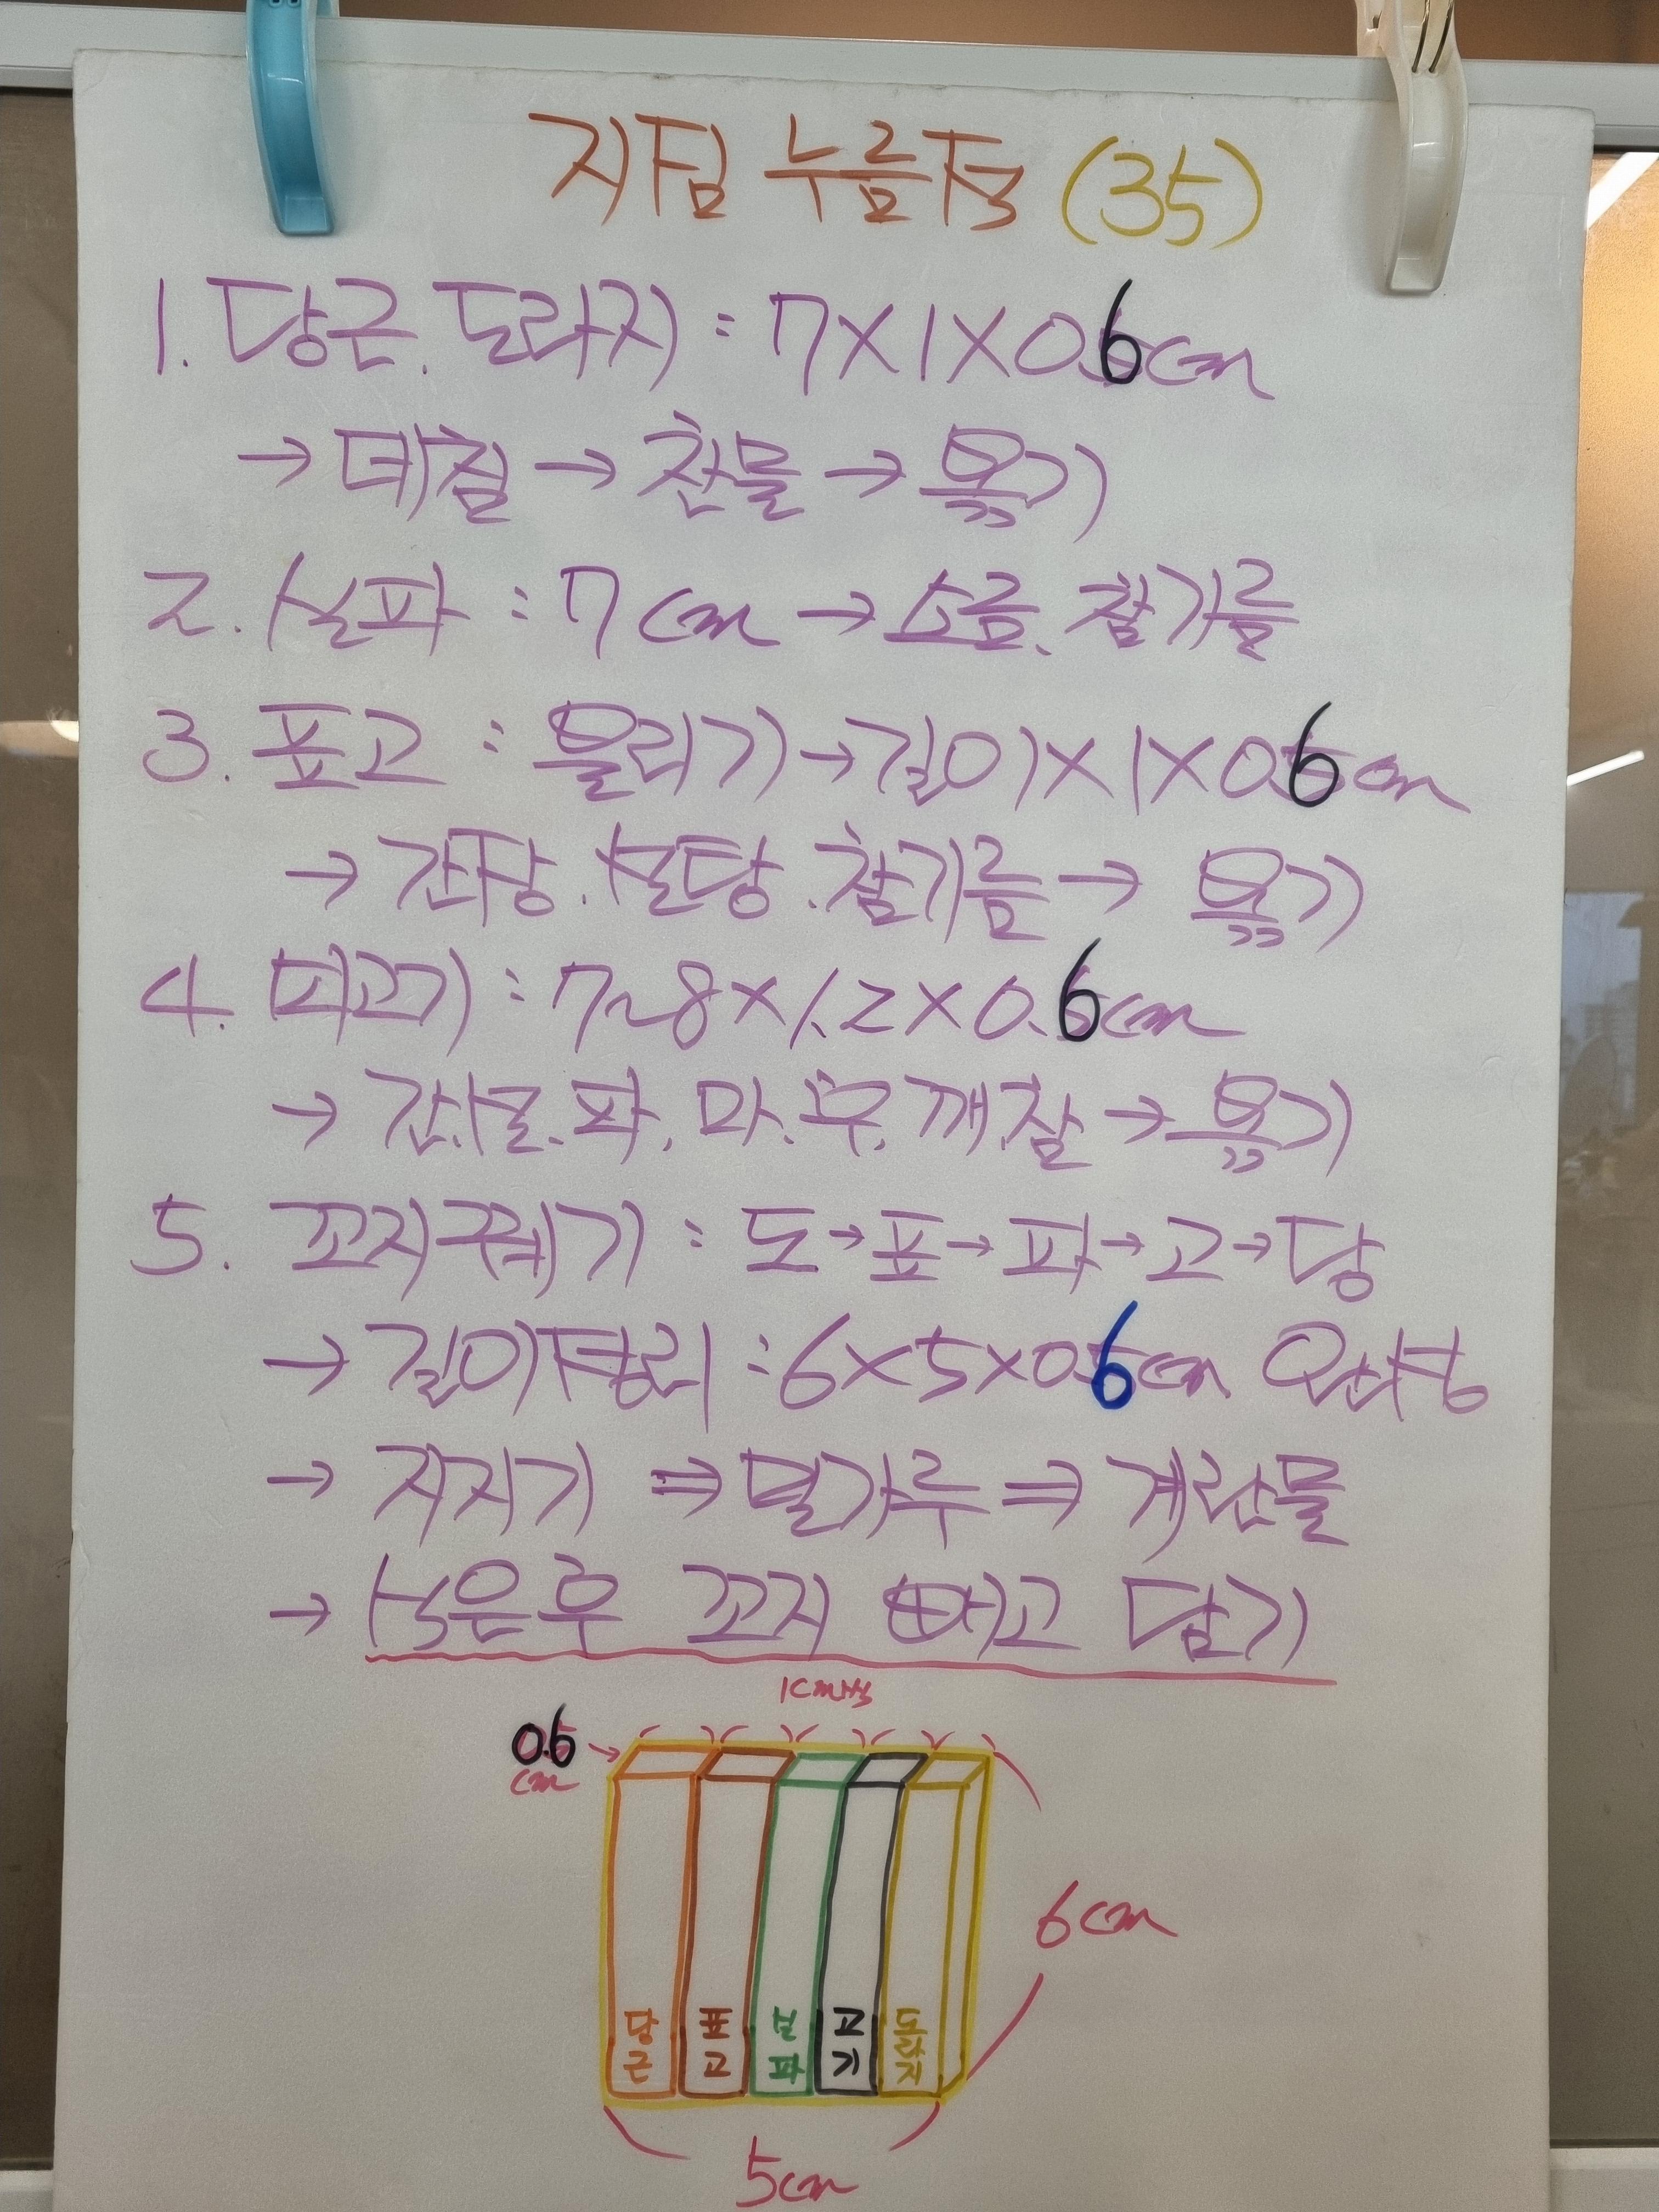 지짐 누름적 (35)
1. 당근. 도라지 : 7×1×0.6cm
→ 데침 → 찬물 → 볶기
2. 실파 : 7cm → 소금. 참기름
3. 표고 : 불리기→길이×1×0.6cm
→ 간장. 설탕. 참기름 → 볶기
4. 고기 : 7~8×1.2×0.6cm
→ 간.설.파.마.후.깨.참 → 볶기
5. 꼬지꿰기 : 도→표→파→고→당
→ 길이정리 : 6×5×0.6cm 완성
→ 지지기 ⇒ 밀가루 ⇒ 계란물
→ 식은후 꼬지 빼고 담기
1cm씩
0.6 →
cm
6cm
당근 표고 실파 고기 도라지
5cm